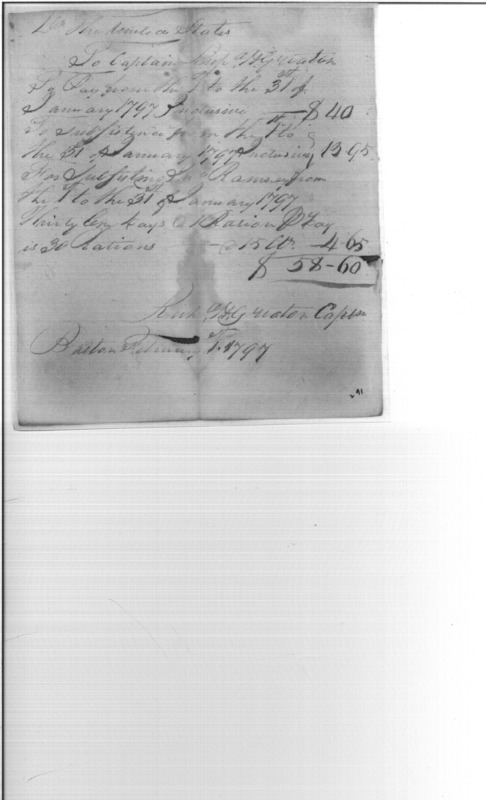 Dr The United States
To Captain Rich H Greaton
To Pay from the 1st to the 31st of
January 1797 Inclusive — $ 40
To Subsistence from the 1st to
the 31 of January 1797 Inclusive 13.95
For Subsisting Ramsey from
the 1st to the 31st of January 1797
Thirty One days @ 1 Rasion P Day
is 30 Rations — @ 15 Cts 4-65
$ 58-60
Rich H Greaton Captn
Boston February 1st 1797